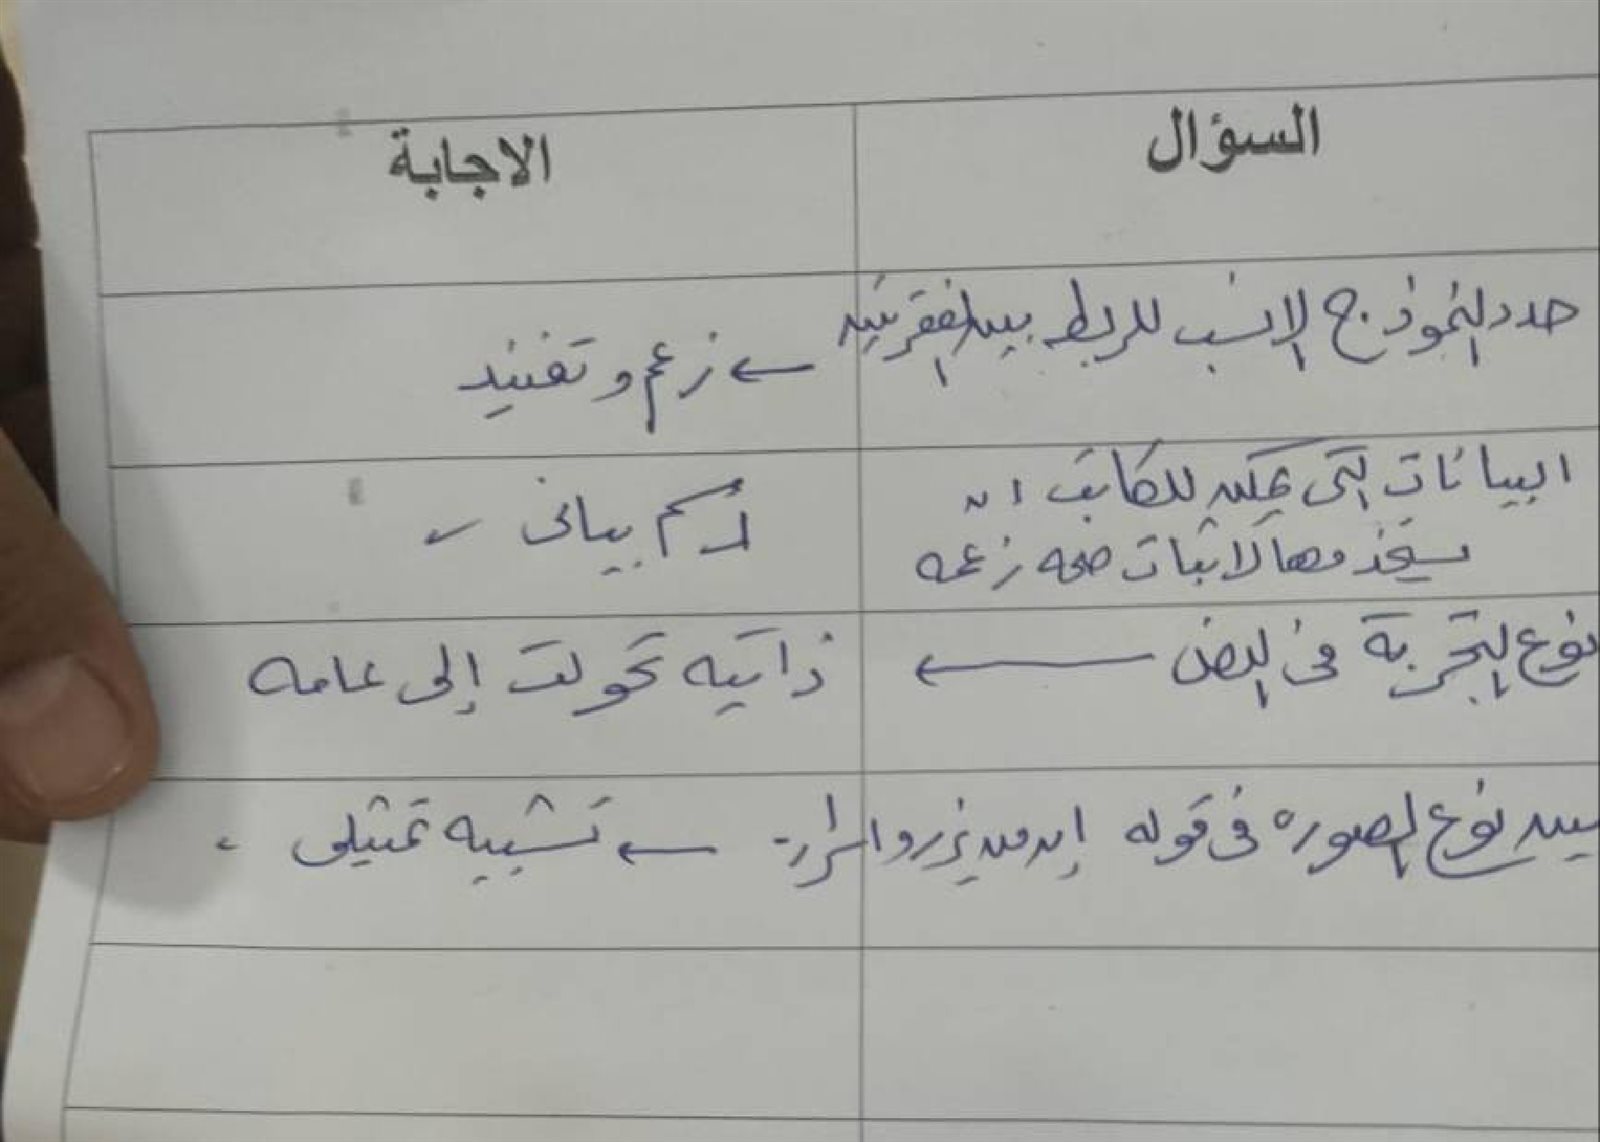 السؤال
الاجابة
حدد النموذج الانسب للربط بين الفقرتين
← زعم وتفنيد
البيانات التى يمكن للكاتب ان
يستخدمها لاثبات صحه زعمه
رسم بيانى
نوع التجربة فى النص ←
ذاتيه تحولت إلى عامه
بين نوع الصوره فى قوله إن من يزرع
← تشبيه تمثيلى